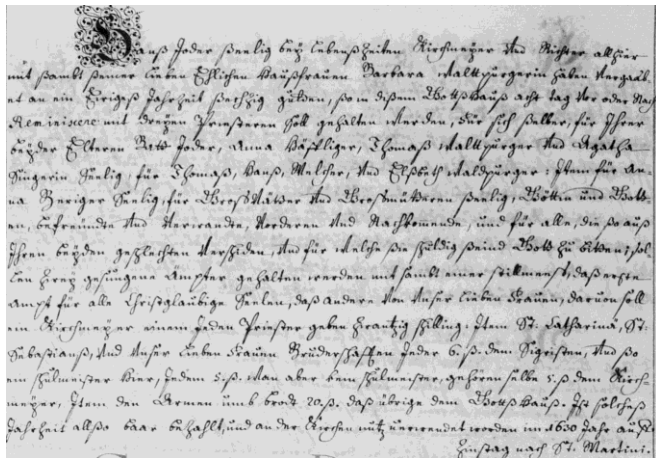 Hanß Joder seelig bey lebenß Zeiten Kirchmeyer Vnd Richter allhier
mit sambt seiner lieben Ehlichen Haußfrauen Barbara Walttpürgerin haben vergaab-
et an ein Ewigeß Jahrzeit sechzig gulden, so in disem Gottßhauß acht tag vor oder Nach
Reminiscere mit dreyen Priesteren soll gehalten werden, für sich selber, für Ihrer
beyder Elteren Bath Joder, Anna Häffliger, Thomaß Walttpürger Vnd Agatha
Singerin Seelig, für Thomaß, Hanß, Melcher, Vnd Elßbeth Waldpürger: Item für An-
na Beriger Seelig, für Großvätter Vnd Großmütteren seelig, Göttin und Gött-
en, befreündte Vnd Verwandte, Vorderen Vnd Nachkomende, und für alle, die so auß
Ihren beyden geschlechten Verschiden, Vnd für welche sie schuldig seind Gott zu bitten; sol-
len zwey gesungene Ämpter gehalten werden mit sambt einer stillmeß, daß erste
Ampt für alle Christglaubige Seelen, daß andere Von Unser lieben Frauen, daruon soll
ein Kirchmeyer einem Jeden Priester geben zwantzig schilling: Item St: Catharina, St:
Sebastianß, Vnd Unser lieben Frauen Bruderschafften Jeder 6. ß. dem Sigristen, Vnd so
ein schulmeister hier, Jedem 5. ß. Wan aber kein schulmeister, gehören selbe 5. ß dem Kirch-
meyer, Item den Armen umb brodt 20. ß. daß übrige dem Gottß Hauß. Ist solcheß
Jahrzeit allso baar bezahlt, und an der Kirchen nutz verwendet worden im 1650 Jahr auf
Zinstag nach St: Martini.